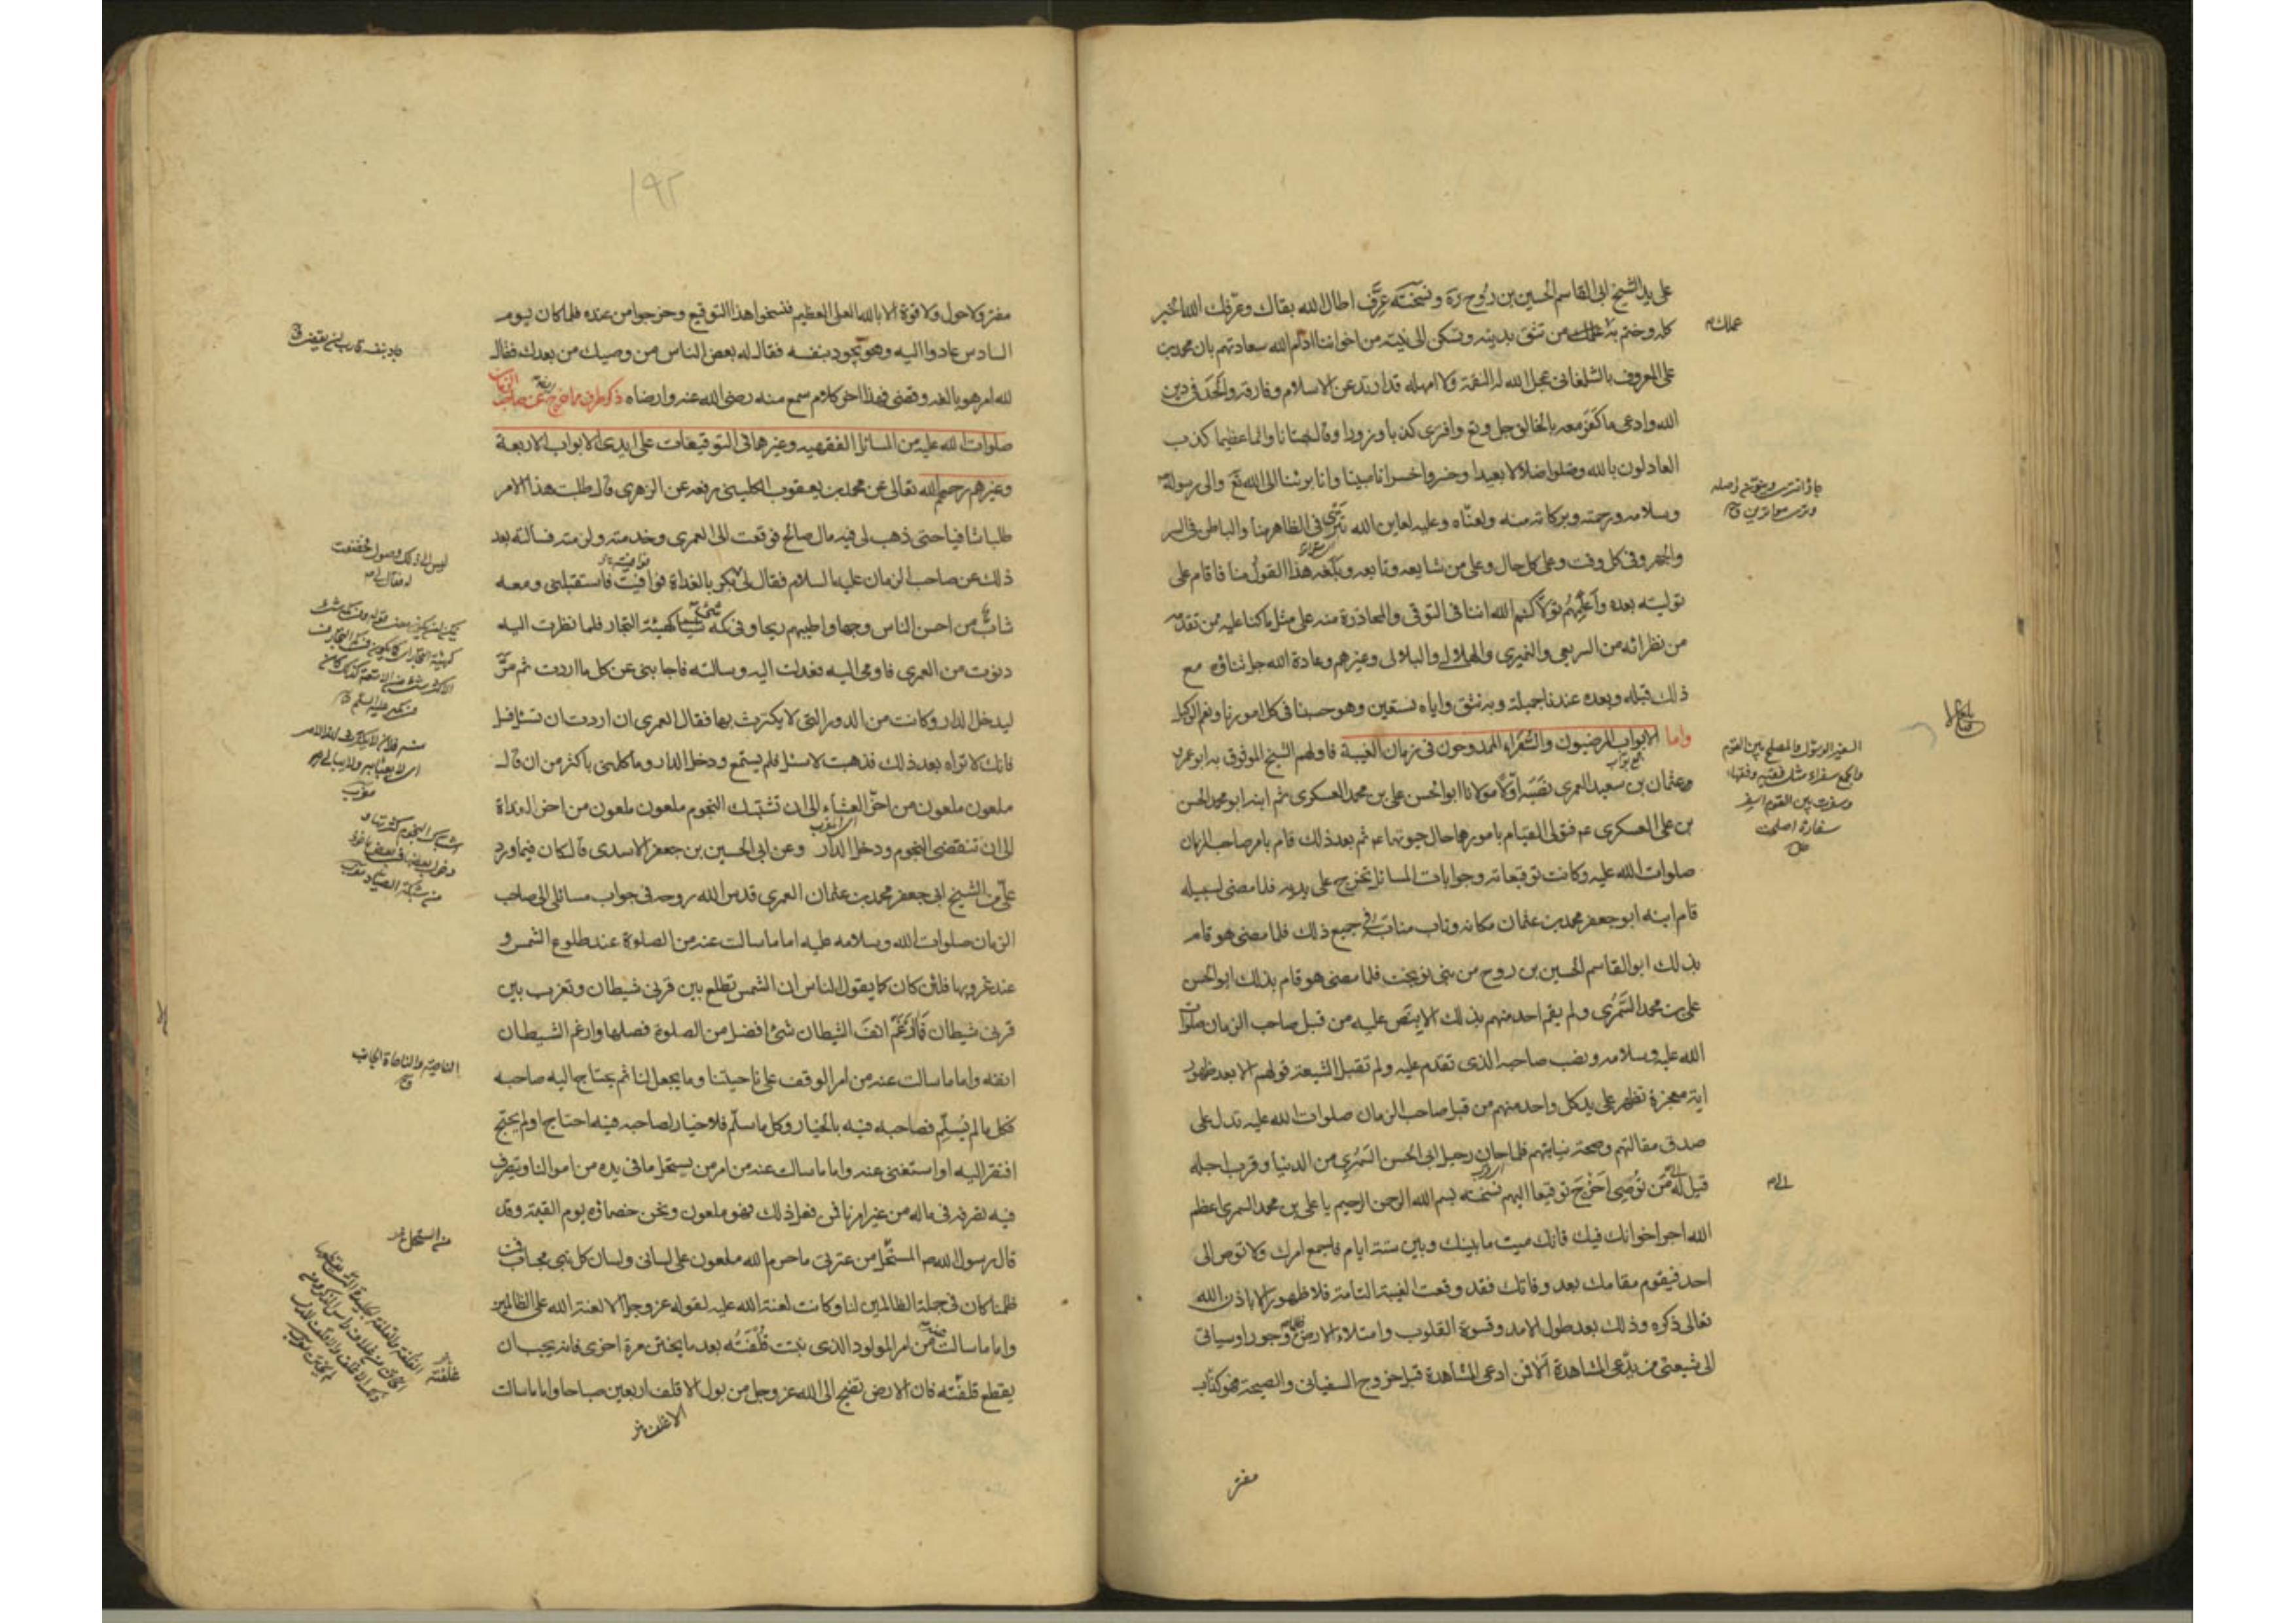 على يد الشيخ ابى القاسم الحسين بن روح ره و نسخته عرّف اطال الله بقاك وعرّفك الله الخير
كله وختم به عملك من تثق بدينه وتسكن الى نيته من اخواننا ادام الله سعادتهم بان محمد بن
على المعروف بالشلغانى عجل الله له النقمة ولا امهله قد ارتد عن الاسلام وفارقه والحد فى دين
الله وادعى ما كفر معه بالخالق جل وتع وافترى كذبا وزورا وقال بهتانا واثما عظيما كذب
العادلون بالله وضلوا ضلالا بعيدا وخسروا خسرانا مبينا وانا برئنا الى الله تع والى رسوله
وسلامه ورحمته وبركاته منه ولعناه وعليه لعاين الله تترى فى الظاهر منا والباطن فى السر
والجهر وفى كل وقت وعلى كل حال وعلى من شايعه وتابعه وبلغه هذا القول منا فاقام على
توليته بعده واعلمهم تولاكم الله اننا فى التوقى والمحاذرة منه على مثل ما كنا عليه ممن تقدمه
من نظرائه من السريعى والنميرى والهلالى والبلالى وغيرهم وعادة الله جل ثناؤه مع
ذلك قبله وبعده عندنا جميلة وبه نثق واياه نستعين وهو حسبنا فى كل امورنا ونعم الوكيل
واما الابواب المرضيون والسفراء الممدوحون فى زمان الغيبة فاولهم الشيخ الموثوق به ابو عمرو
وعثمان بن سعيد العمرى نصبه اولا مولانا ابو الحسن على بن محمد العسكرى ثم ابنه ابو محمد الحسن
بن على العسكرى عم فتولى القيام بامورهما حال حيوتهما عم ثم بعد ذلك قام بامر صاحب الزمان
صلوات الله عليه وكانت توقيعاته وجوابات المسائل تخرج على يديه فلما مضى لسبيله
قام ابنه ابو جعفر محمد بن عثمان مكانه وناب منابه فى جميع ذلك فلما مضى هو قام
بذلك ابو القاسم الحسين بن روح من بنى نوبخت فلما مضى هو قام بذلك ابو الحسن
على بن محمد السمرى ولم يقم احد منهم بذلك الا بنص عليه من قبل صاحب الزمان صلوات
الله عليه وسلامه ونصب صاحبه الذى تقدم عليه ولم تقبل الشيعة قولهم الا بعد ظهور
اية معجزة تظهر على يد كل واحد منهم من قبل صاحب الزمان صلوات الله عليه تدل على
صدق مقالتهم وصحة نيابتهم فلما حان رحيل ابى الحسن السمرى من الدنيا وقرب اجله
قيل له الى من توصى اخرج توقيعا اليهم نسخته بسم الله الرحمن الرحيم يا على بن محمد السمرى اعظم
الله اجر اخوانك فيك فانك ميت ما بينك وبين ستة ايام فاجمع امرك ولا توص الى
احد فيقوم مقامك بعد وفاتك فقد وقعت الغيبة التامة فلا ظهور الا باذن الله
تعالى ذكره وذلك بعد طول الامد وقسوة القلوب وامتلاء الارض جورا وسياتى
الى شيعتى من يدعى المشاهدة الا فمن ادعى المشاهدة قبل خروج السفيانى والصيحة فهو كذاب
مفتر
عملك م
السفير الرسول والمصلح بين القوم
والجمع سفراء مثل فقيه وفقهاء
وسفرت بين القوم اسفر
سفارة اصلحت
الى م
١٩٢
مفتر ولا حول ولا قوة الا بالله العلى العظيم فنسخوا هذا التوقيع وخرجوا من عنده فلما كان ليوم
السادس عادوا اليه وهو يجود بنفسه فقال له بعض الناس من وصيك من بعدك فقال
لله امر هو بالغه وقضى فهذا اخر كلام سمع منه رضى الله عنه وارضاه ذكر طرف مما خرج عن صاحب الزمان
صلوات الله عليه من المسائل الفقهيه وغيرها فى التوقيعات على ايدى الابواب الاربعة
وغيرهم رحمهم الله تعالى عن محمد بن يعقوب الكلينى رفعه عن الزهرى قال طلبت هذا الامر
طلبا شافيا حتى ذهب لى فيه مال صالح فوقعت الى العمرى وخدمته ولزمته فسالته بعد
ذلك عن صاحب الزمان عليه السلام فقال لى بكر بالغداة فوافيت فاستقبلنى ومعه
شاب من احسن الناس وجها واطيبهم ريحا وفى كمه شئ كهيئة التجار فلما نظرت اليه
دنوت من العمرى فاومى اليه فعدلت اليه وسالته فاجابنى عن كل ما اردت ثم مرّ
ليدخل الدار وكانت من الدور التى لا يكترث بها فقال العمرى ان اردت ان تسئل فسل
فانك لا تراه بعد ذلك فذهبت لاسئل فلم يستمع ودخل الدار وما كلمنى باكثر من ان قال
ملعون ملعون من اخّر العشاء الى ان تشتبك النجوم ملعون ملعون من اخر الغداة
الى ان تنقضى النجوم ودخل الدار وعن ابى الحسين بن جعفر الاسدى قال كان فيما ورد
علىّ من الشيخ ابى جعفر محمد بن عثمان العمرى قدس الله روحه فى جواب مسائلى الى صاحب
الزمان صلوات الله وسلامه عليه اما ما سالت عنه من الصلوة عند طلوع الشمس و
عند غروبها فلئن كان كما يقول الناس ان الشمس تطلع بين قرنى شيطان وتغرب بين
قرنى شيطان فما ارغم انف الشيطان شئ افضل من الصلوة فصلها وارغم الشيطان
انفه واما ما سالت عنه من امر الوقف على ناحيتنا وما يجعل لنا ثم يحتاج اليه صاحبه
فكل ما لم يسلم فصاحبه فيه بالخيار وكل ما سلم فلا خيار لصاحبه فيه احتاج او لم يحتج
افتقر اليه او استغنى عنه واما ما سالت عنه من امر من يستحل ما فى يده من اموالنا ويتصرف
فيه تصرفه فى ماله من غير امرنا فمن فعل ذلك فهو ملعون ونحن خصماؤه يوم القيمة وقد
قال رسول الله ص المستحل من عترتى ما حرم الله ملعون على لسانى ولسان كل نبى مجاب فمن
ظلمنا كان فى جملة الظالمين لنا وكانت لعنة الله عليه لقوله عز وجل الا لعنة الله على الظالمين
واما ما سالت عنه من امر المولود الذى نبتت قلفته بعد ما يختن مرة اخرى فانه يجب ان
يقطع قلفته فان الارض تضج الى الله عز وجل من بول الاقلف اربعين صباحا واما ما سالت
الاغلف
جاد بنفسه قارب ان يقضى
الناحية والناحاة الجانب
غلفته